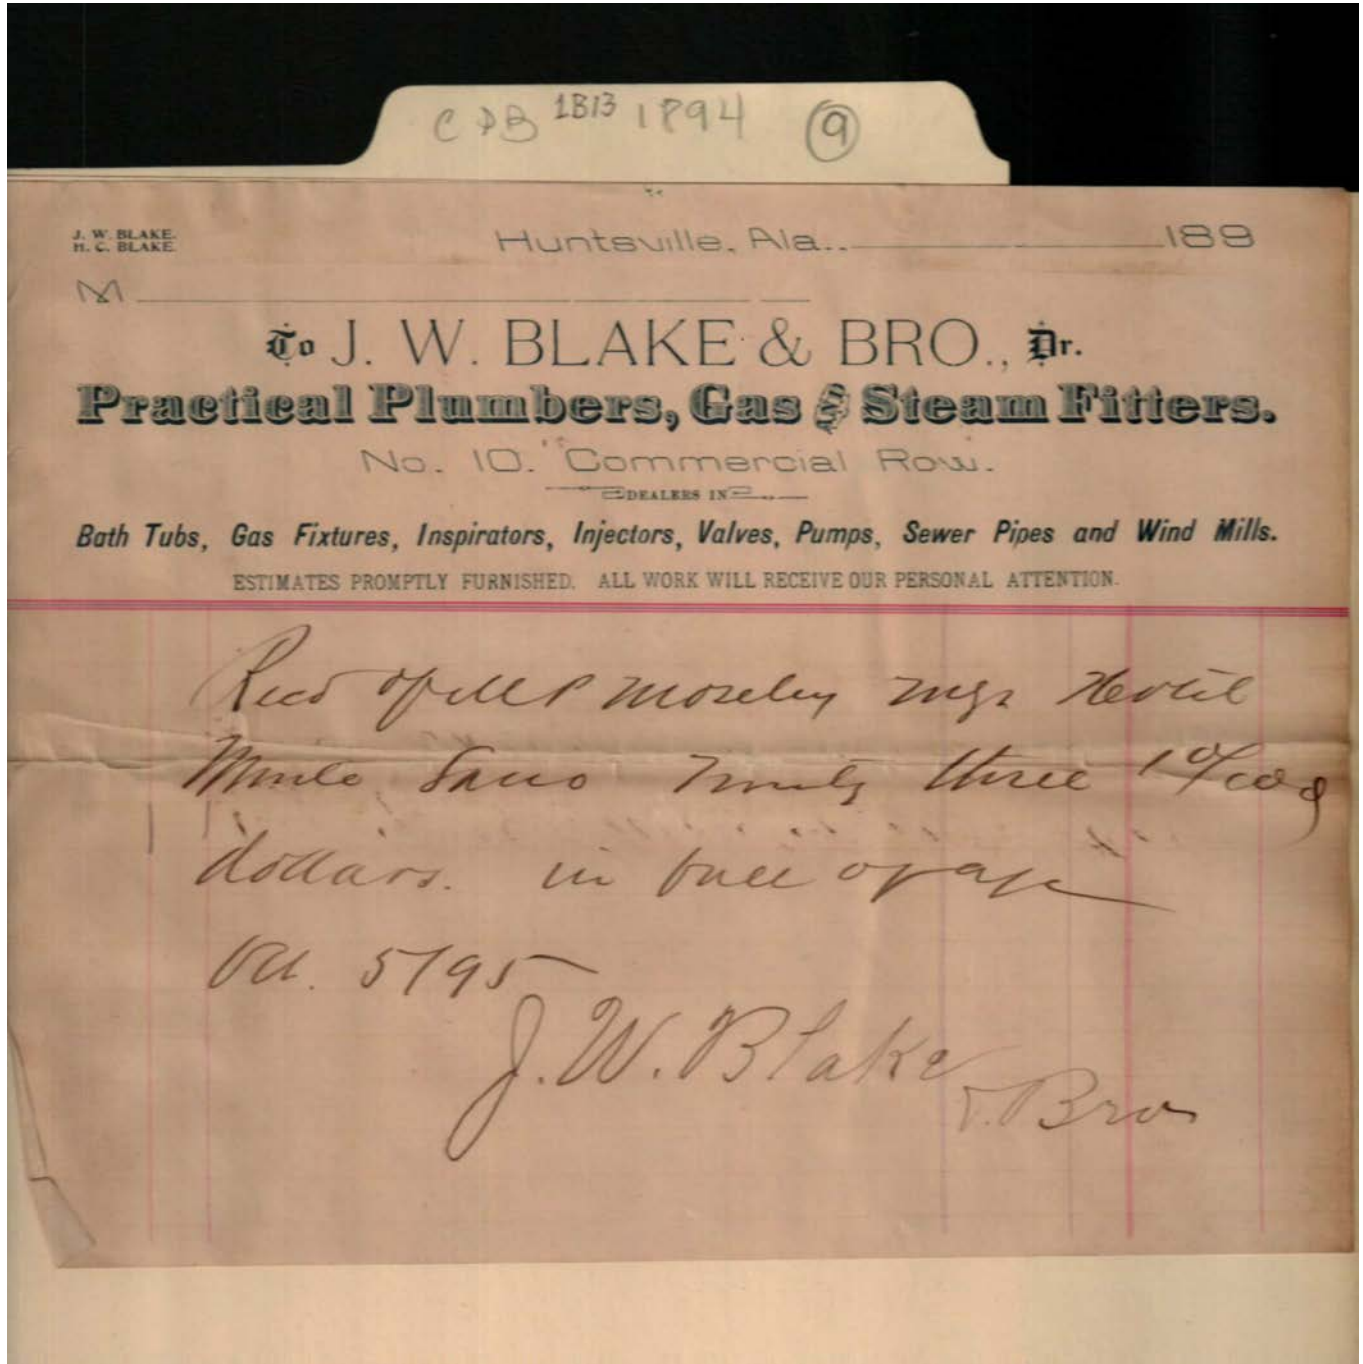 CDB 1B13 1894 9
J. W. BLAKE.
H. C. BLAKE.
Huntsville, Ala., 189
M
To J. W. BLAKE & BRO., Dr.
Practical Plumbers, Gas and Steam Fitters.
No. 10. Commercial Row.
DEALERS IN
Bath Tubs, Gas Fixtures, Inspirators, Injectors, Valves, Pumps, Sewer Pipes and Wind Mills.
ESTIMATES PROMPTLY FURNISHED. ALL WORK WILL RECEIVE OUR PERSONAL ATTENTION.
Recd of M P Moseley mgr Hotel
Monte Sano Twenty three
dollars. in full of a/c
Oct. 5/95
J. W. Blake
& Bro